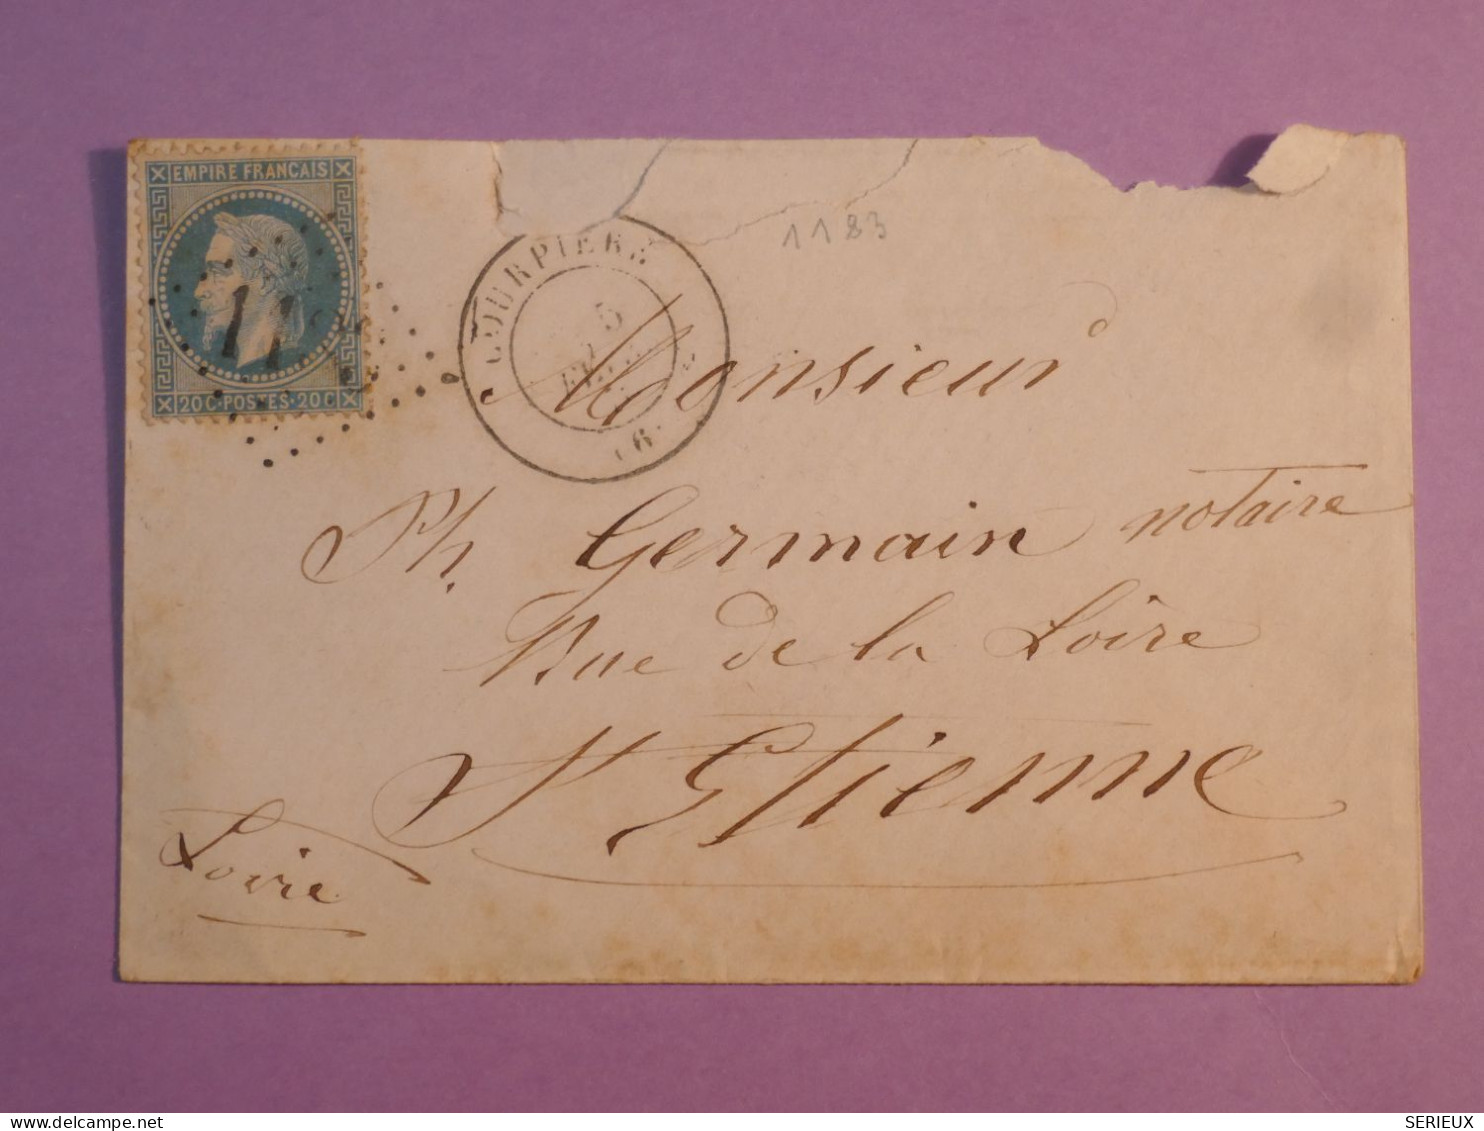 EMPIRE FRANCAIS
20C · POSTES · 20C
11
COURPIERE
5
1183
Monsieur
Ph. Germain notaire
Rue de la Loire
St Etienne
Loire
SERIEUX